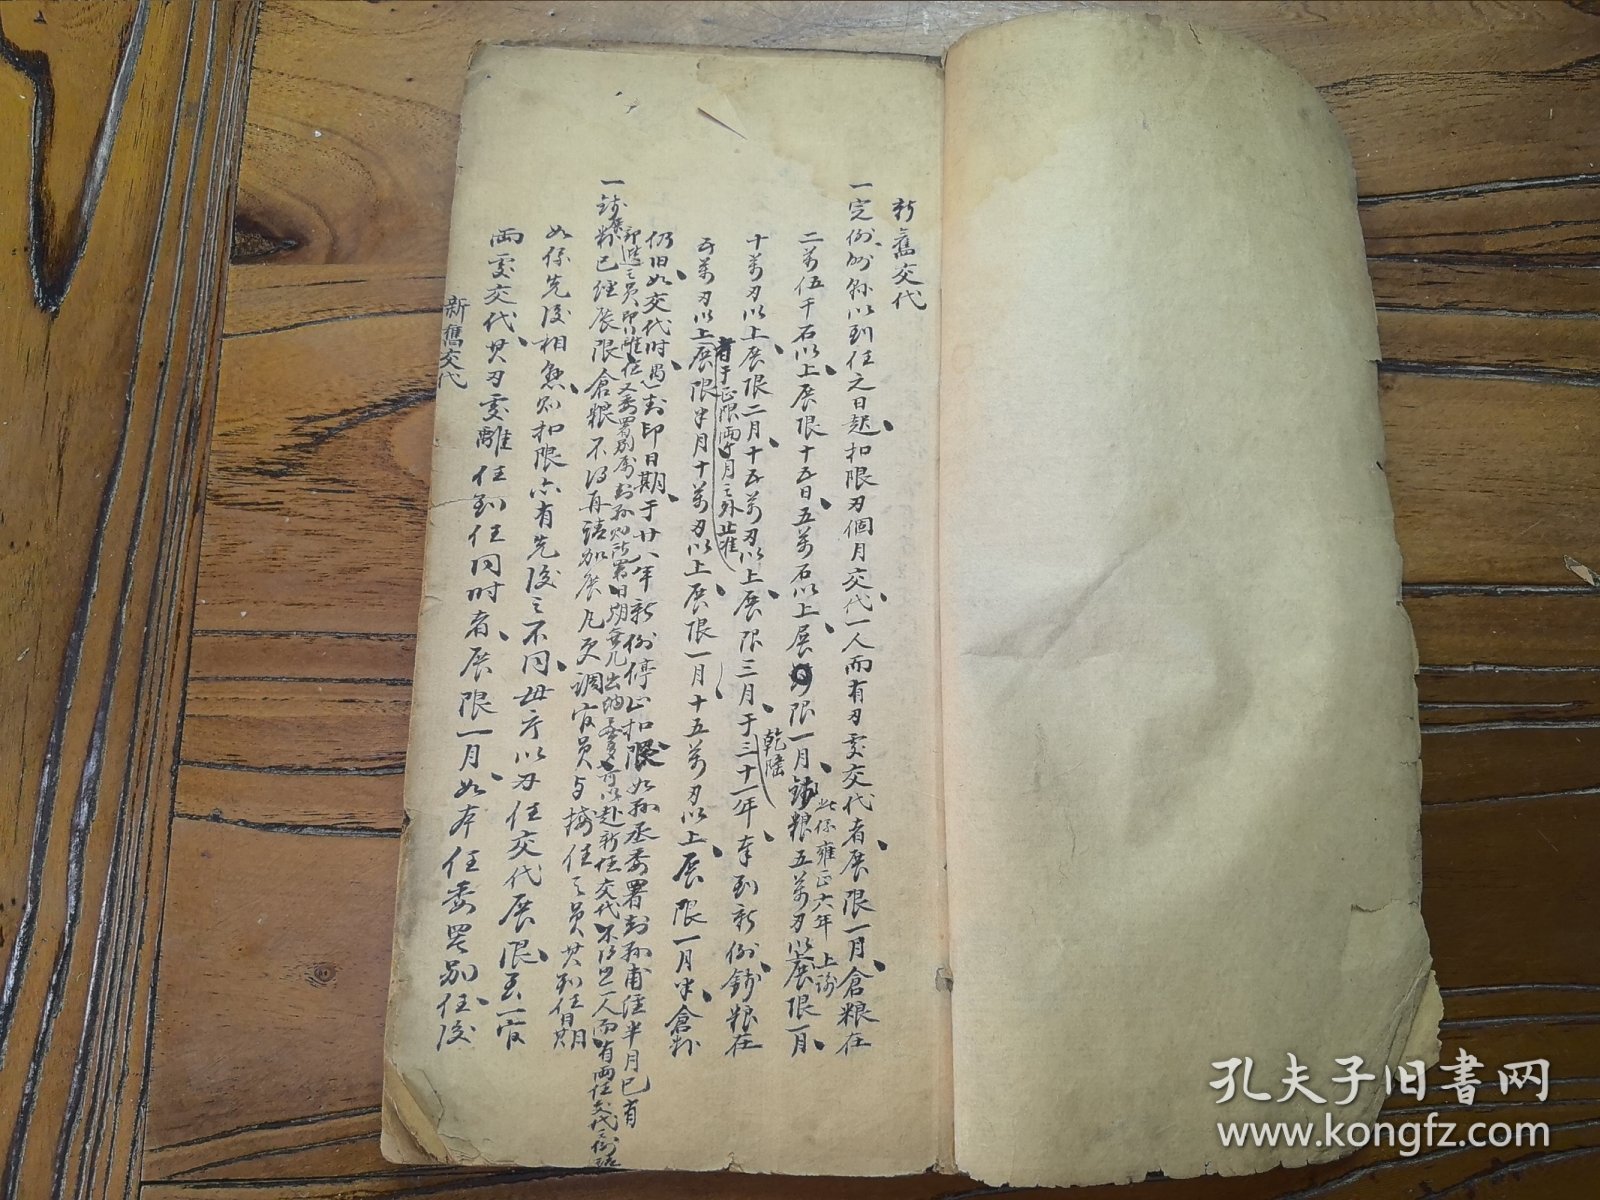 新舊交代
一定例州縣以到任之日起扣限兩個月交代一人而有兩處交代者展限一月倉粮在
二萬伍千石以上展限十五日五萬石以上展限一月錢粮五萬兩以上展限一月
此係雍正六年上諭
十萬兩以上展限二月十五萬兩以上展限三月于三十一年奉到新例錢粮在
乾隆
五萬兩以上展限半月十萬兩以上展限一月十五萬兩以上展限一月半倉粮
者于正限兩个月之外准
仍旧如交代时遇封印日期于廿八年新例停止扣限如孫丞委署封孫甫任半月已有
即選之員印離位又委署別封以赴新任交代不得思一人而有兩任交代之例
一錢粮已经展限倉粮不得再請加展凡更調官員与接任之員其到任日期
如係先後相懸則扣限亦有先後之不同毋庸以兩任交代展限至一官
兩處交代其兩處離任到任同时者展限一月如本任委署別任後
新舊交代
孔夫子旧書网
www.kongfz.com